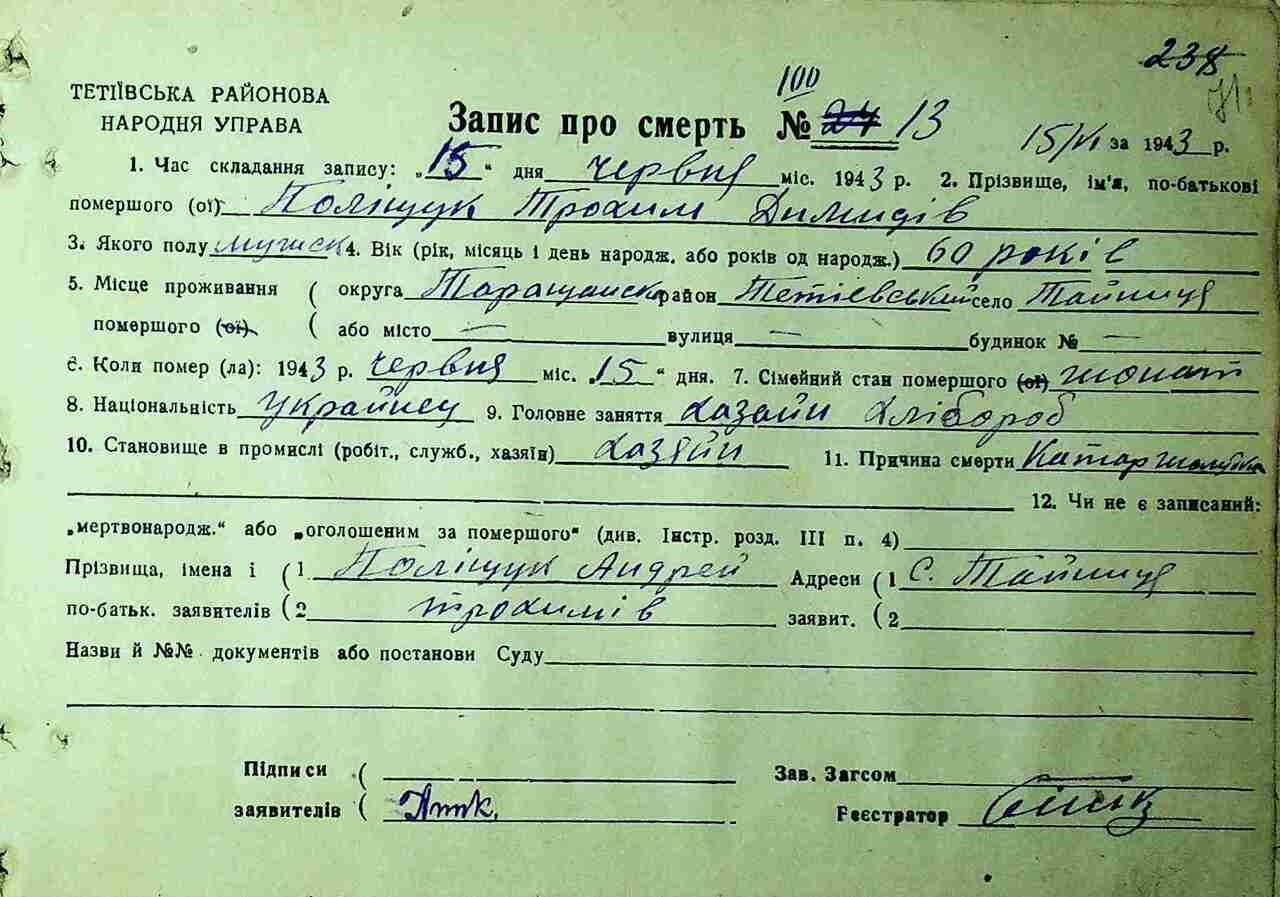 238
71
ТЕТІЇВСЬКА РАЙОНОВА
НАРОДНЯ УПРАВА
100
Запис про смерть № 24 13 15/VI за 1943 р.
1. Час складання запису: „15“ дня червня міс. 1943 р. 2. Прізвище, ім'я, по-батькові
помершого (ої) Поліщук Трохим Димидів
3. Якого полу мужск 4. Вік (рік, місяць і день народж. або років од народж.) 60 років
5. Місце проживання ( округа Таращанска район Тетіевський село Тайниця
помершого (ої) ( або місто — вулиця — будинок № —
6. Коли помер (ла): 1943 р. червня міс. „15“ дня. 7. Сімейний стан помершого (ої) жонат
8. Національність Украйнец 9. Головне заняття хазайн хлібороб
10. Становище в промислі (робіт., служб., хазяїн) хазяйн 11. Причина смерти Катар желудка
12. Чи не є записаний:
„мертвонародж.“ або „оголошеним за помершого“ (див. Інстр. розд. III п. 4)
Прізвища, імена і ( 1 Поліщук Андрей Адреси ( 1 С. Тайниця
по-батьк. заявителів ( 2 трохимів заявит. ( 2
Назви й №№ документів або постанови Суду
Підписи ( Зав. Загсом
заявителів ( Реєстратор